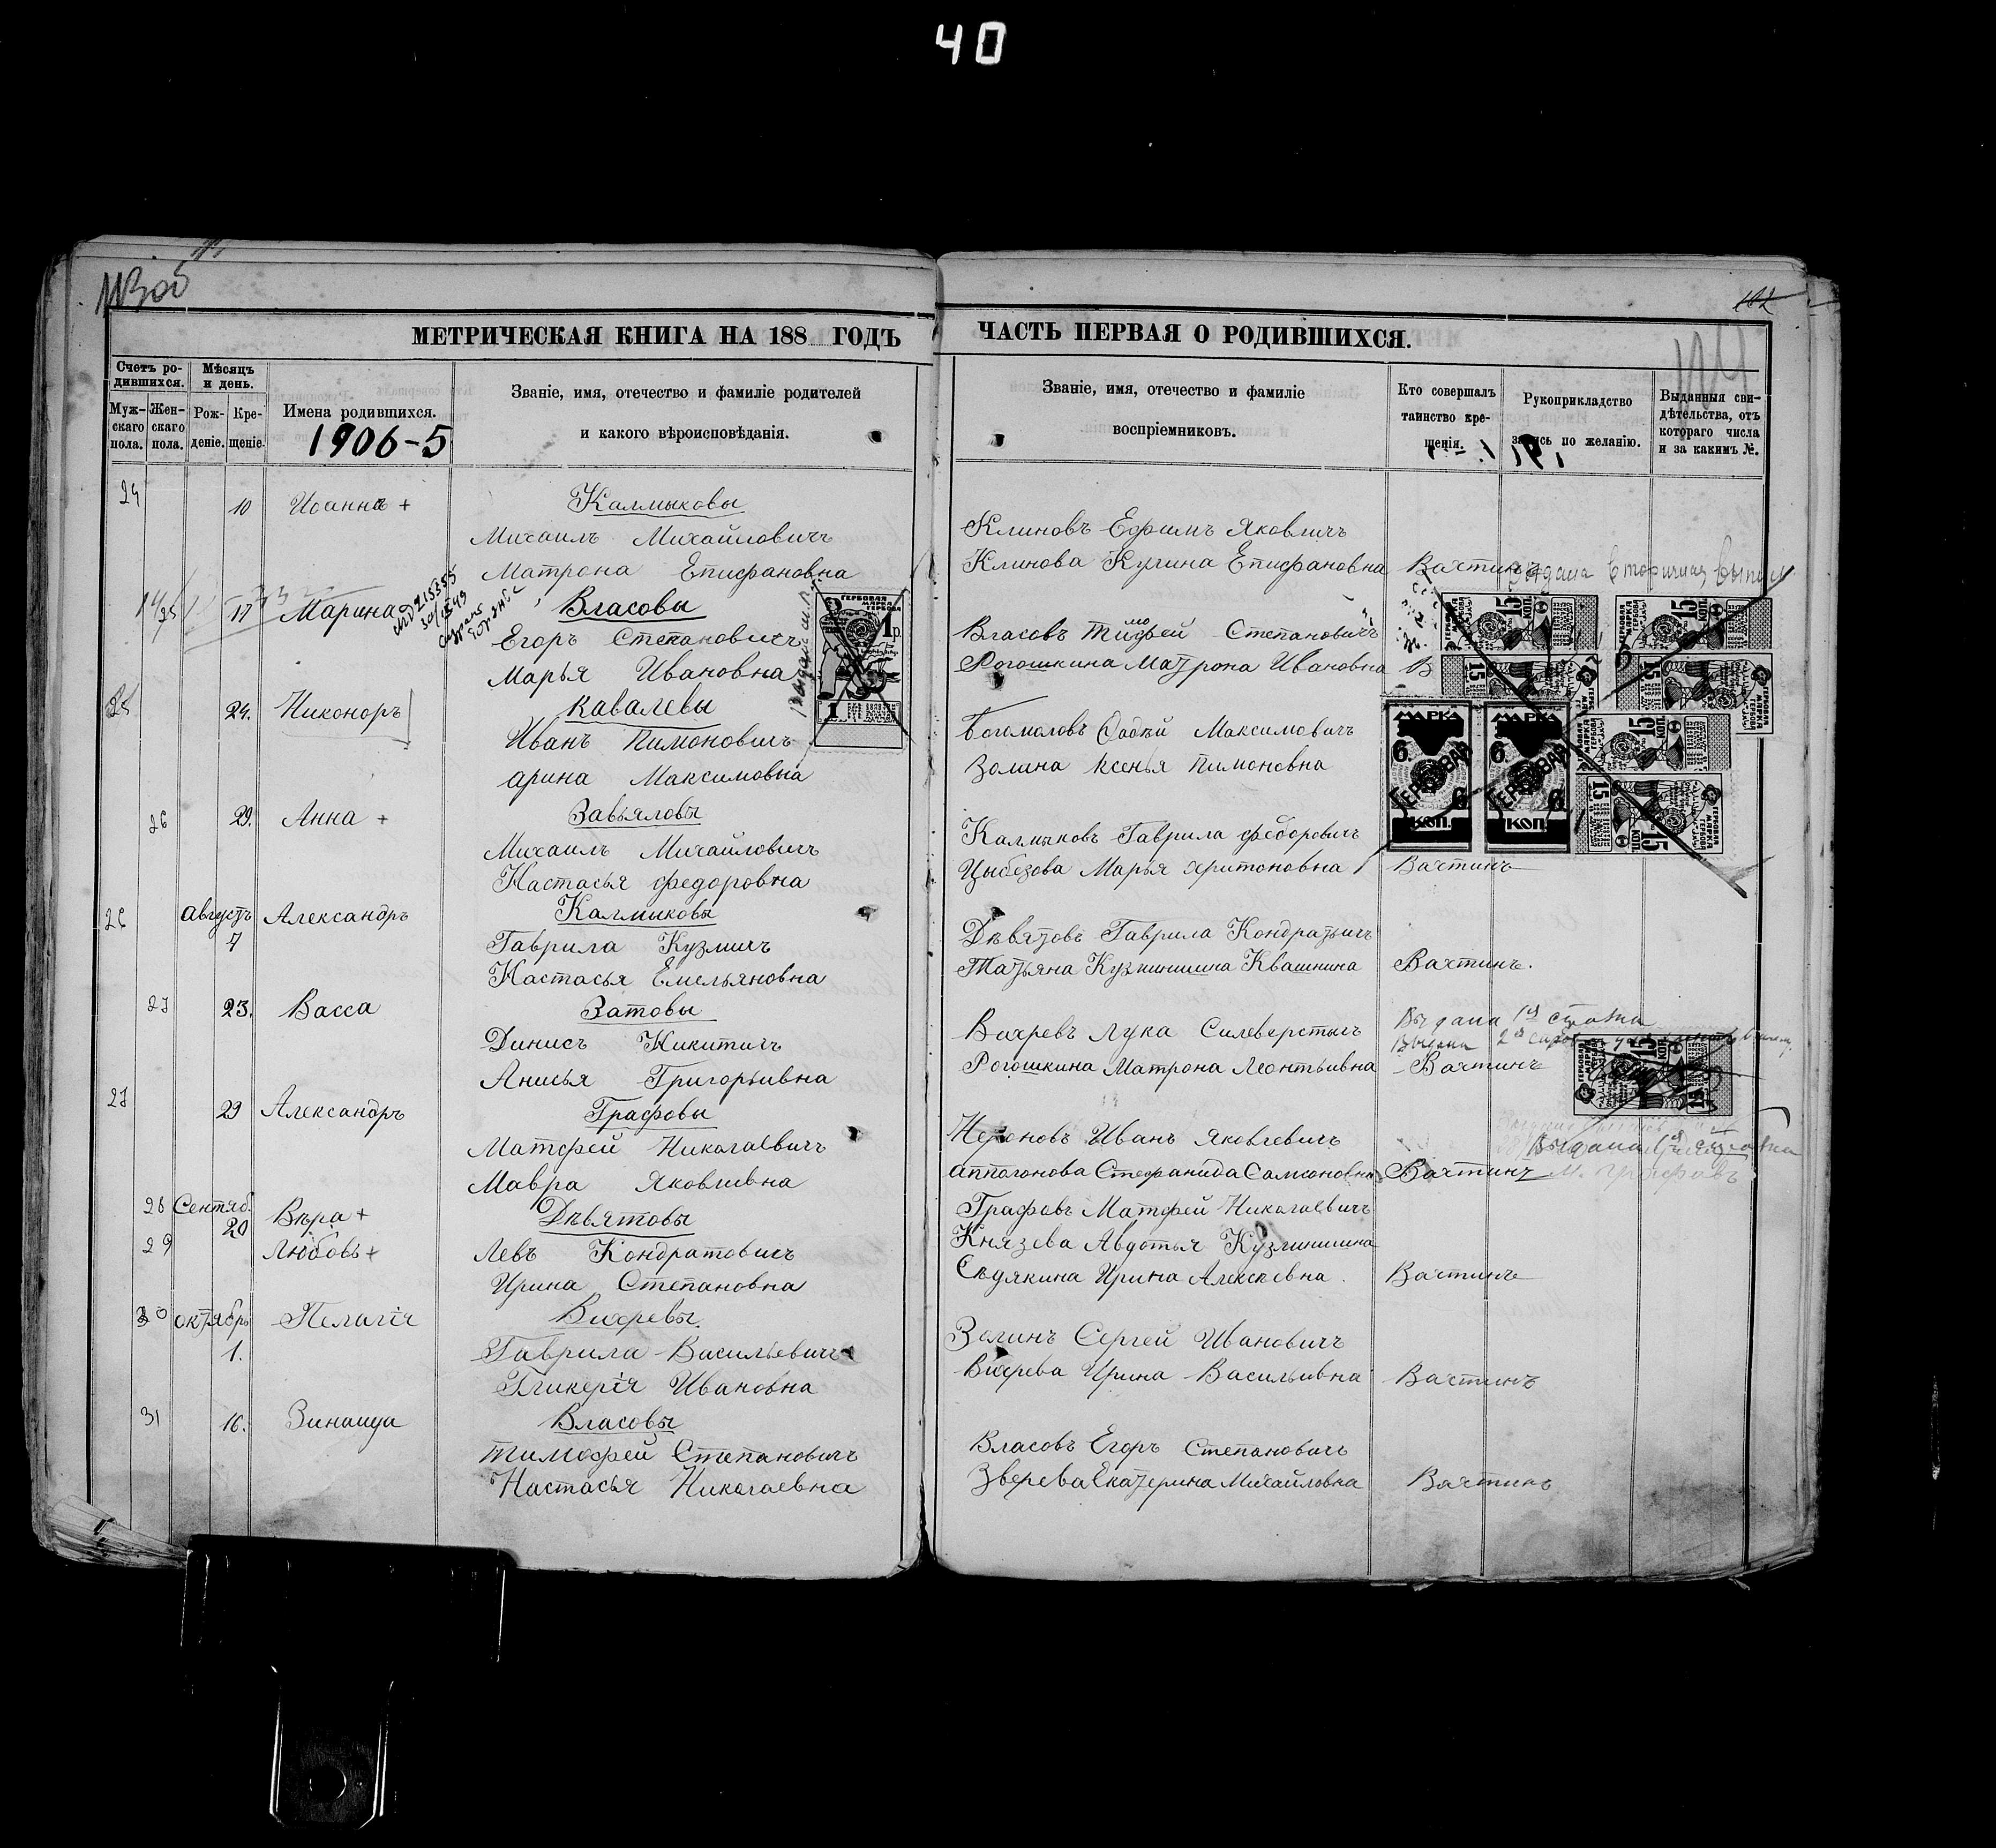 40
113об
102
104
МЕТРИЧЕСКАЯ КНИГА НА 188 ГОДЪ
ЧАСТЬ ПЕРВАЯ О РОДИВШИХСЯ.
Счетъ ро-
дившихся.
Мѣсяцъ
и день.
Муж-
скаго
пола.
Жен-
скаго
пола.
Рож-
деніе.
Кре-
щеніе.
Имена родившихся.
1906-5
Званіе, имя, отечество и фамиліе родителей
и какого вѣроисповѣданія.
Званіе, имя, отечество и фамиліе
воспріемниковъ.
Кто совершалъ
таинство кре-
щенія.
Рукоприкладство
запись по желанію.
Выданныя сви-
дѣтельства, отъ
котораго числа
и за какимъ №.
24 10 Иоанна + Калмыковы
Михаилъ Михайловичъ
Матрона Епифановна
Клиновъ Ефимъ Яковличъ
Клинова Кулина Епифановна Вахтинъ
25 17 Марина Власовы
Егоръ Степановичъ
Марья Ивановна
Власовъ Тимофей Степановичъ
Рогошкина Матрона Ивановна В
25 24. Никоноръ Кавалевы
Иванъ Пимоновичъ
Арина Максимовна
Богомоловъ Фадѣй Максимовичъ
Золина Ксенья Пимоновна
26 29. Анна + Завьяловы
Михаилъ Михайловичъ
Настасья Федоровна
Калмыковъ Гаврила Федоровичъ
Цыбезова Марья Харитоновна Вахтинъ
26 Августъ Александръ Калмыковы
7
Гаврила Кузмичъ
Настасья Емельяновна
Дѣвятовъ Гаврила Кондратьичъ
Татьяна Кузминишна Квашнина Вахтинъ.
27 23. Васса Затовы
Динисъ Никитичъ
Анисья Григорьивна
Вихревъ Лука Силеверстычъ
Рогошкина Матрона Леонтьивна Вахтинъ
Выдана 1ая справка
27 29 Александръ Графовы
Матфей Николаевичъ
Мавра Яковливна
Иванъ Яковлевичъ
Апполонова Стефанида Самсоновна Вахтинъ
Выдана 1ая справка
М. Графовъ
28 Сентяб. Вѣра + Дѣвятовы
20
29 Любовь +
Левъ Кондратовичъ
Ирина Степановна
Графовъ Матфей Николаевичъ
Князева Авдотья Кузминишна
Сѣдякина Ирина Алексѣевна. Вахтинъ
30 Октябрь Пелагія Вихревы.
1.
Гаврила Васильевичъ
Гликерія Ивановна
Золинъ Сергей Ивановичъ
Вихрева Ирина Васильивна Вахтинъ
31 16. Зинаида Власовы
Тимофей Степановичъ
Настасья Николаевна
Власовъ Егоръ Степановичъ
Зверева Екатерина Михайловна Вахтинъ
ГЕРБОВАЯ
МАРКА
1р.
1
МАРКА
6
ГЕРБОВАЯ
6
КОП.
МАРКА
6
ГЕРБОВАЯ
6
КОП.
15 КОП.